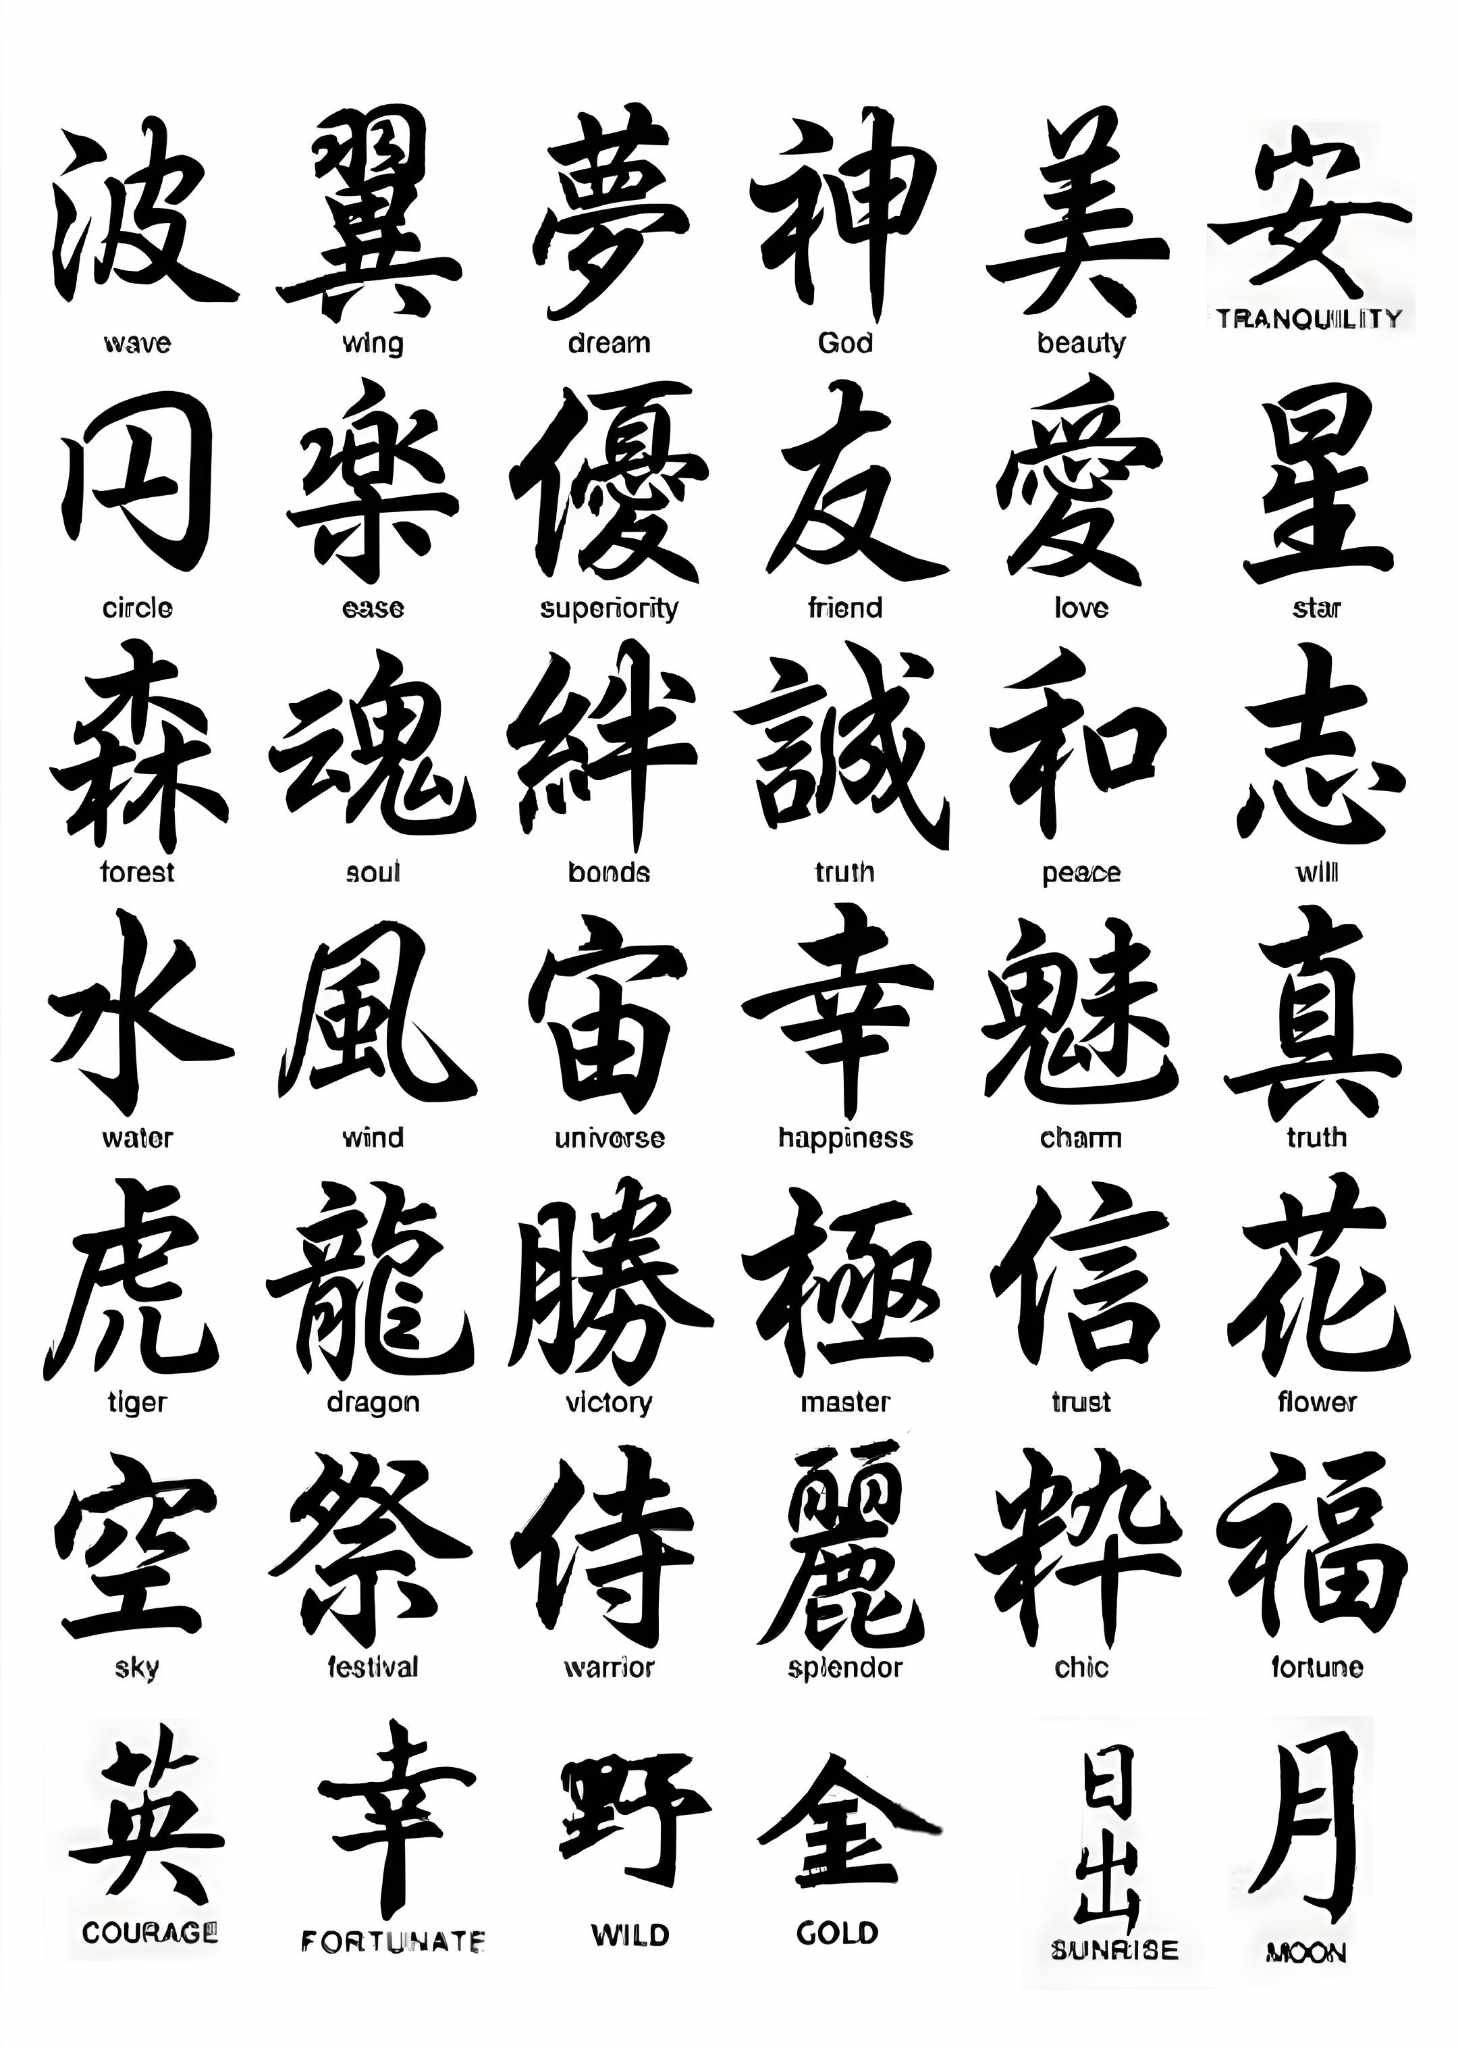 波 翼 夢 神 美 安
wave wing dream God beauty TRANQUILITY
円 楽 優 友 愛 星
circle ease superiority friend love star
森 魂 絆 誠 和 志
forest soul bonds truth peace will
水 風 宙 幸 魅 真
water wind universe happiness charm truth
虎 龍 勝 極 信 花
tiger dragon victory master trust flower
空 祭 侍 麗 粋 福
sky festival warrior splendor chic fortune
英 幸 野 金 日出 月
COURAGE FORTUNATE WILD GOLD SUNRISE MOON